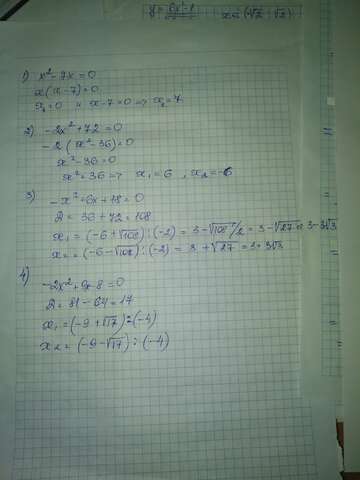 1) x² - 7x = 0
x(x - 7) = 0
x₁ = 0 и x - 7 = 0 => x₂ = 7
2) -2x² + 72 = 0
-2(x² - 36) = 0
x² - 36 = 0
x² = 36 => x₁ = 6, x₂ = -6
3) -x² + 6x + 18 = 0
D = 36 + 72 = 108
x₁ = (-6 + √108) : (-2) = 3 - √108/2 = 3 - √27 = 3 - 3√3
x₂ = (-6 - √108) : (-2) = 3 + √27 = 3 + 3√3
4) -2x² + 9x - 8 = 0
D = 81 - 64 = 17
x₁ = (-9 + √17) : (-4)
x₂ = (-9 - √17) : (-4)